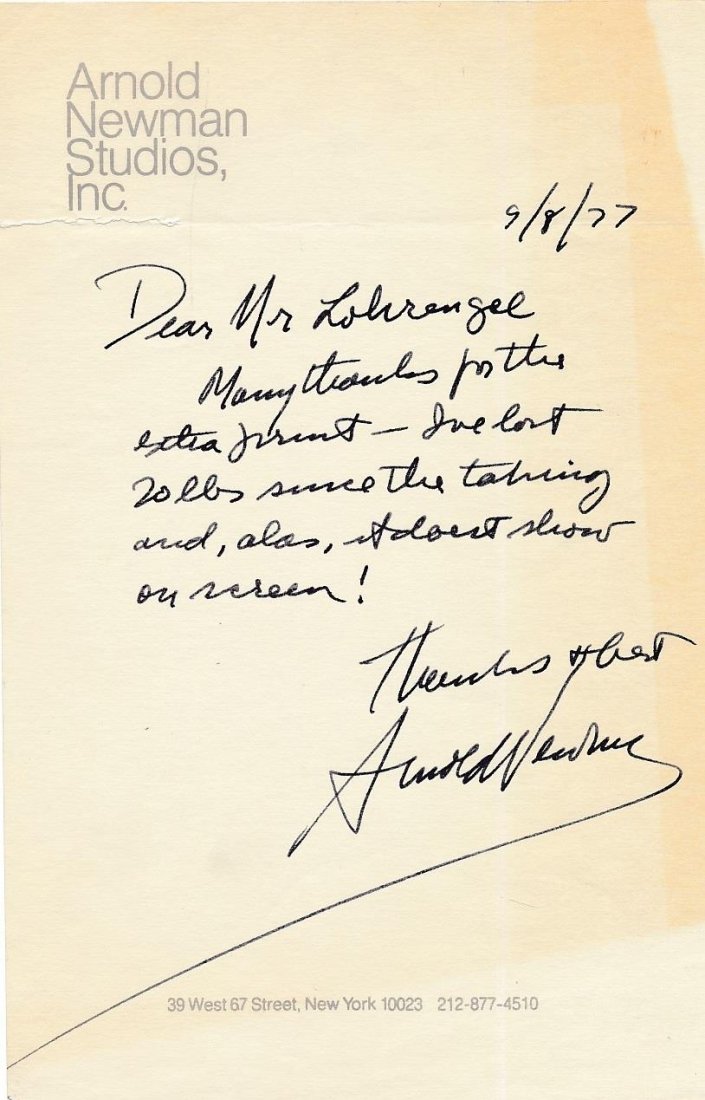 Arnold
Newman
Studios,
Inc.
9/8/77
Dear Mr Lohrengel
Many thanks for the
extra print — I've lost
20 lbs since the taking
and, alas, it doesnt show
on screen!
Thanks & best
Arnold Newman
39 West 67 Street, New York 10023 212-877-4510